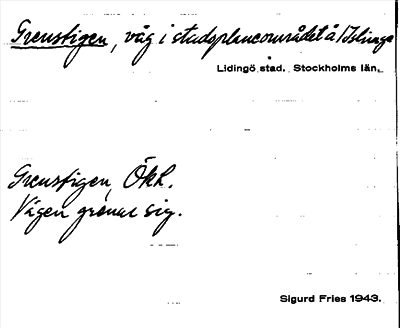 Grenstigen, väg i stadsplaneområdet å Islinge
Lidingö stad. Stockholms län.
Grenstigen, Ökk.
Vägen grenar sig.
Sigurd Fries 1943.